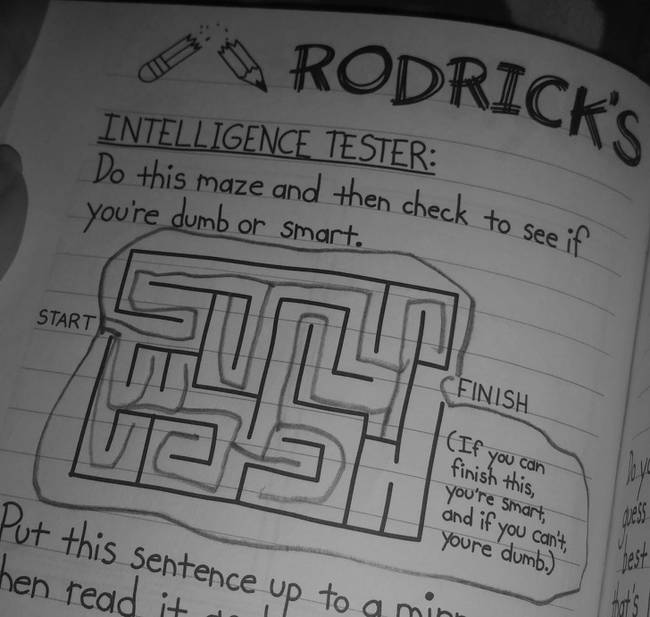 RODRICK'S
INTELLIGENCE TESTER:
Do this maze and then check to see if
you're dumb or smart.
START
FINISH
(If you can
finish this,
you're smart,
and if you can't,
youre dumb.)
Put this sentence up to a
then read it